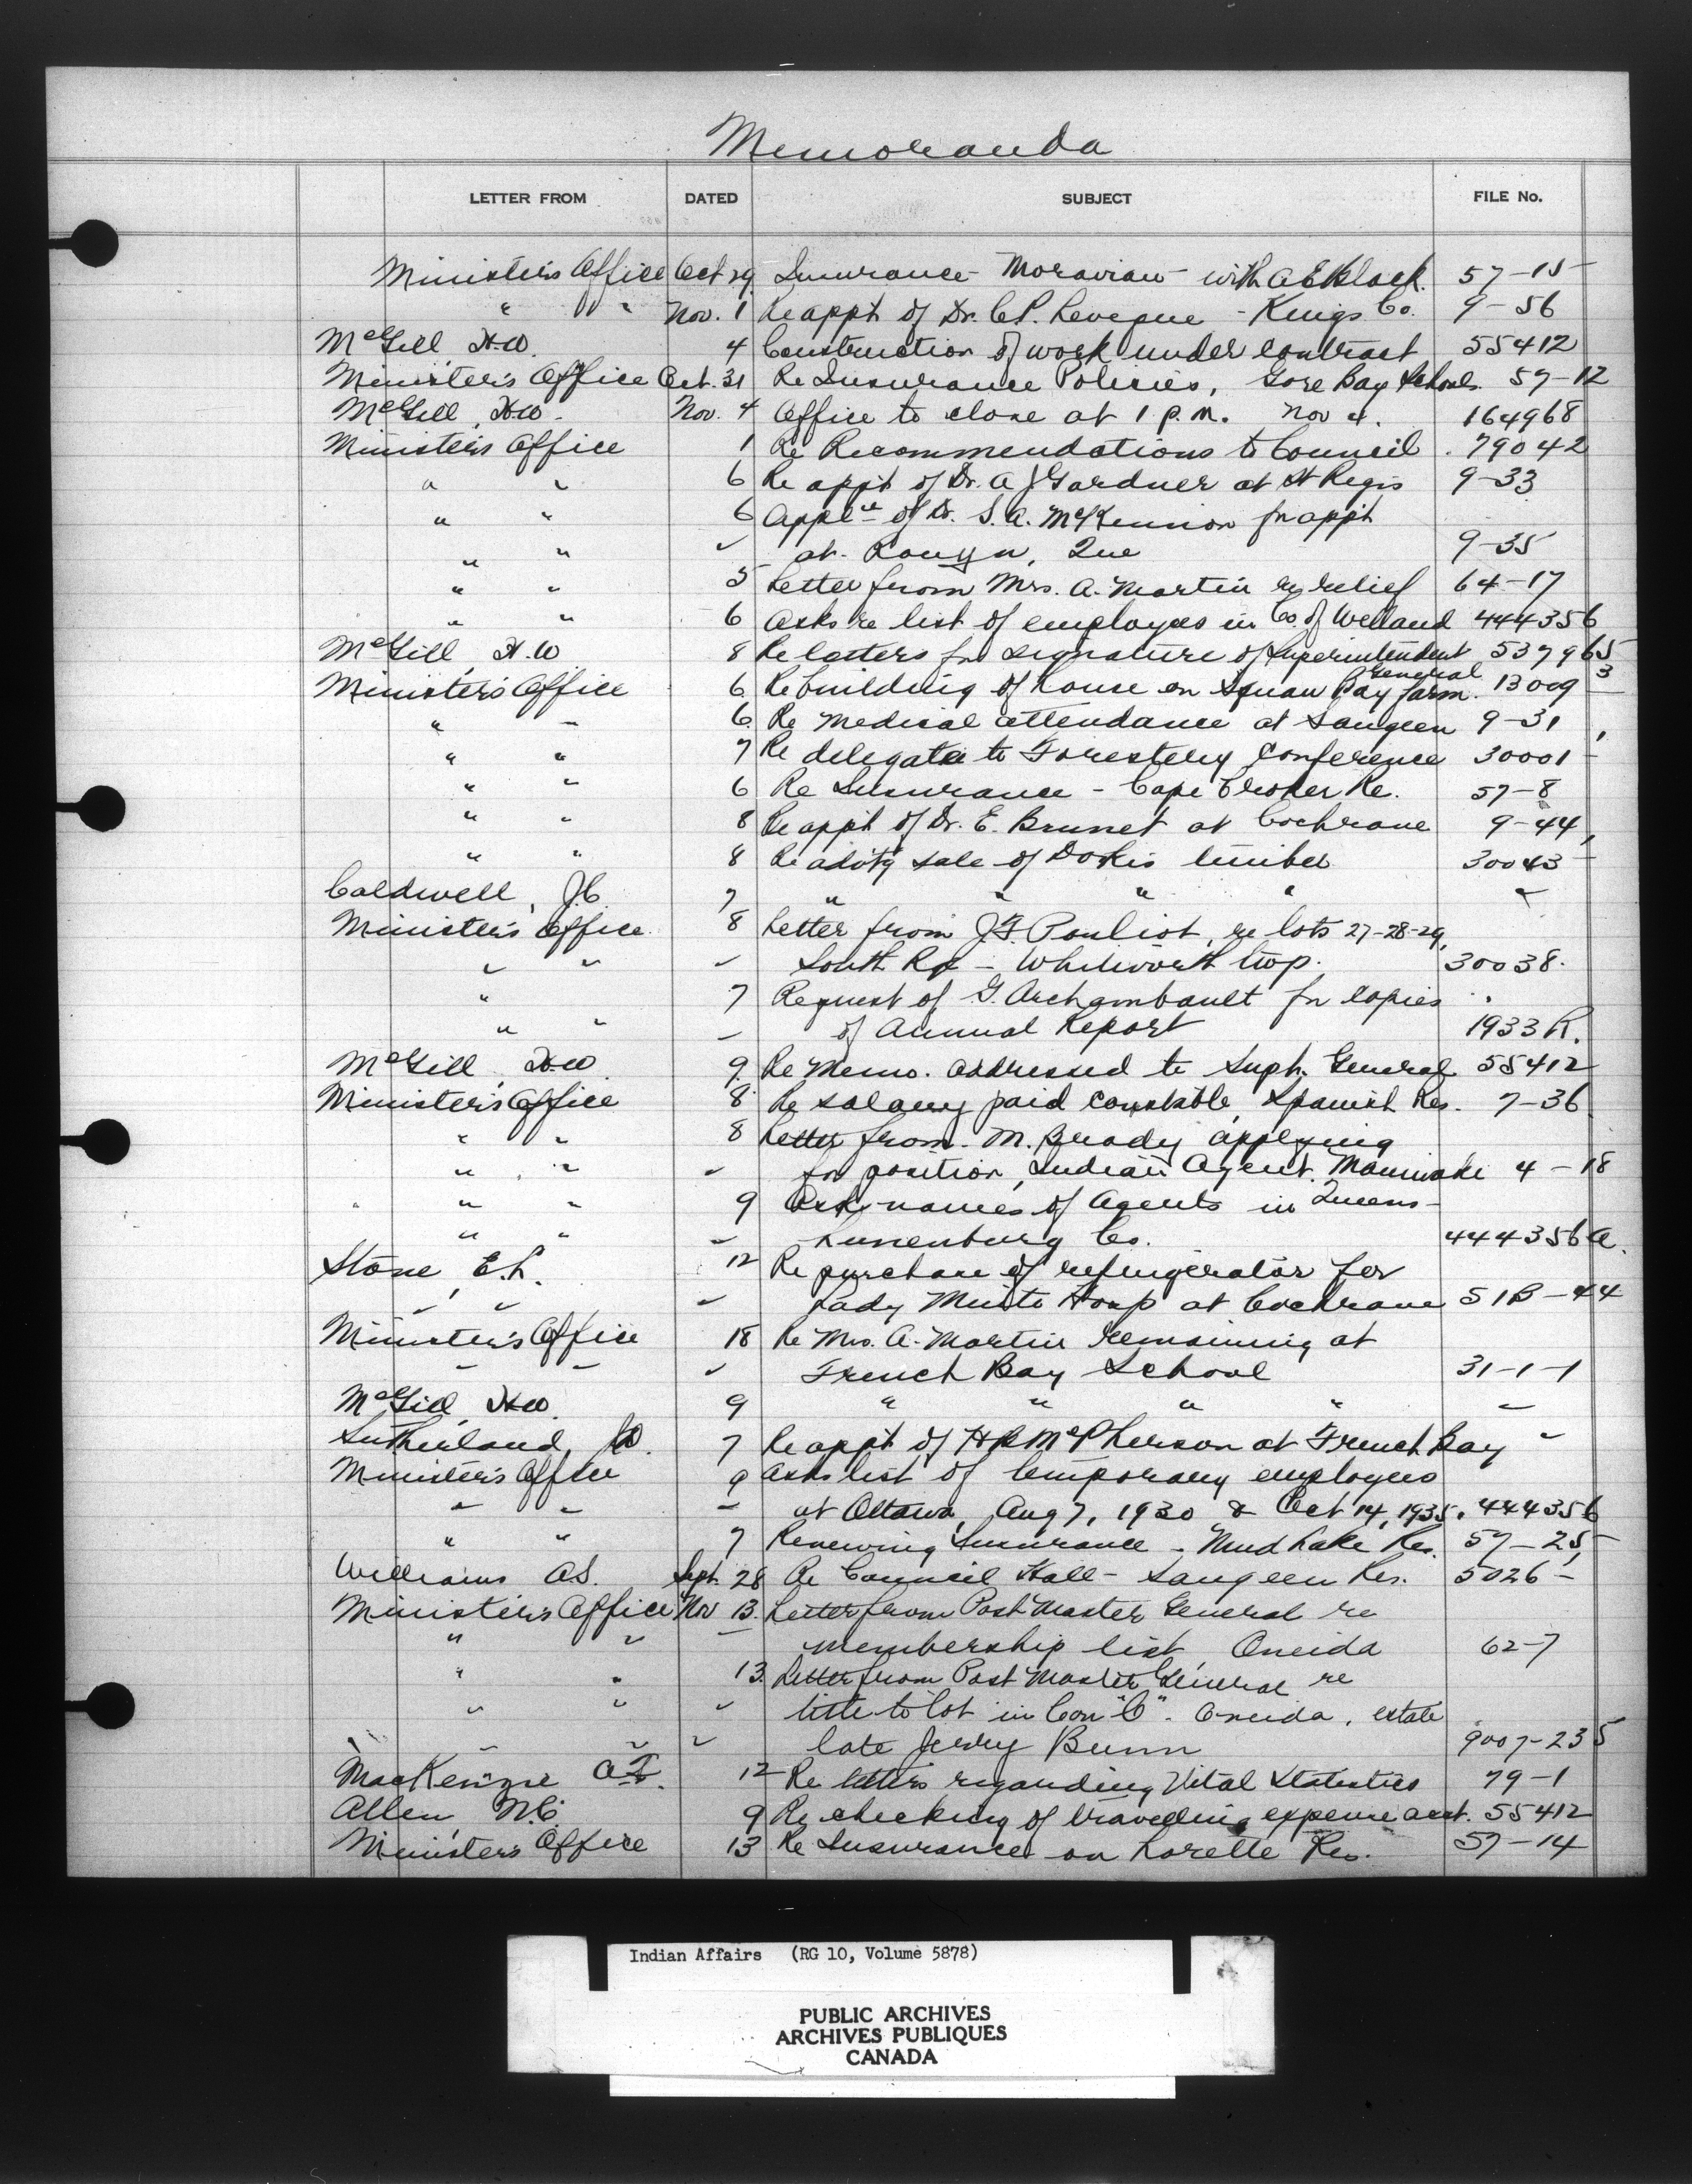 Memoranda
LETTER FROM DATED SUBJECT FILE No.
Minister's Office Oct 29 Insurance - Moravian - with A E Black. 57-15
" " Nov. 1 Re appt of Dr. C.P. Levegue - Kings Co. 9-56
McGill H.W. 4 Construction of work under contract 55412
Minister's Office Oct. 31 Re Insurance Policies, Gore Bay Schools. 57-12
McGill, H.W. Nov. 4 Office to close at 1 p.m. Nov 4. 164968
Minister's Office 1 Re Recommendations to Council . 79042
" " 6 Re appt of Dr. A J Gardner at St Regis 9-33
" " 6 Applcn of Dr. S. A. McKinnon for appt
" " " at Rouyn, Que 9-35
" " 5 Letter from Mrs. A. Martin re relief 64-17
" " 6 Asks re list of employees in Co. of Welland 444356
McGill, H.W 8 Re letters for signature of Superintendent 537965
General
Minister's Office 6 Rebuilding of house on Squaw Bay farm. 13009 3
" " 6 Re medical attendance at Saugeen 9-31
" " 7 Re delegate to Forestery Conference 30001 -
" " 6 Re Insurance - Cape Croker Re. 57-8
" " 8 Re appt of Dr. E. Brunet at Cochrane 9-44
" " 8 Re advtg sale of Dokis timber 30043 -
Caldwell, J.C. 7 " " " " "
Minister's Office 8 Letter from J.F. Pouliot, re lots 27-28-29,
" " " South Rge - Whitworth twp. 30038.
" 7 Request of G. Archambault for copies
" " " of Annual Report 1933 R.
McGill, H.W 9. Re Memo. addressed to Supt. General 55412
Minister's Office 8 Re salary paid constable, Spanish Res. 7-36
" " 8 Letter from M. Brady applying
" " " for position, Indian Agent. Maniwaki 4-18
" " 9 Ask names of Agents in Queens -
" " " Lunenburg Co. 444356 A.
Stone, E.L. 12 Re purchase of refrigerator for
" " " Lady Minto Hosp at Cochrane 51B-44
Minister's Office 18 Re Mrs. A. Martin remaining at
" " " French Bay School 31-1-1
McGill, H.W. 9 " " " " "
Sutherland, 7 Re appt of H R McPherson at French Bay "
Minister's Office 9 Asks list of temporary employees
" " " at Ottawa, Aug 7, 1930 & Oct 14, 1935. 444356
" " 7 Renewing Insurance - Mud Lake Res. 57-25
Williams A.S. Sept. 28 Re Council Hall - Saugeen Res. 5026 -
Minister's Office Nov 13. Letter from Post Master General re
" " " membership list, Oneida 62-7
" " 13. Letter from Post Master General re
" " " title to lot in Con "C" - Oneida, estate
" " " late Jerry Bunn 9007-23 5
MacKenzie A.F. 12 Re letters regarding Vital Statistics 79-1
Allen, N.C. 9 Re checking of travelling expense acct. 55412
Minister's Office 13 Re Insurances on Lorette Res. 57-14
Indian Affairs (RG 10, Volume 5878)
PUBLIC ARCHIVES
ARCHIVES PUBLIQUES
CANADA